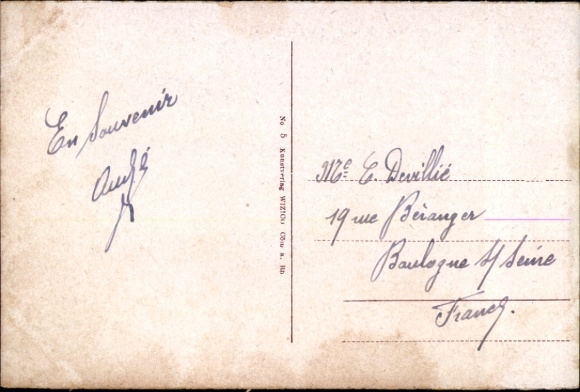 En Souvenir
André
No 5 Kunstverlag WIZICO; Cöln a. Rh.
Me E. Devillié
19 rue Béranger
Boulogne s/ Seine
France.